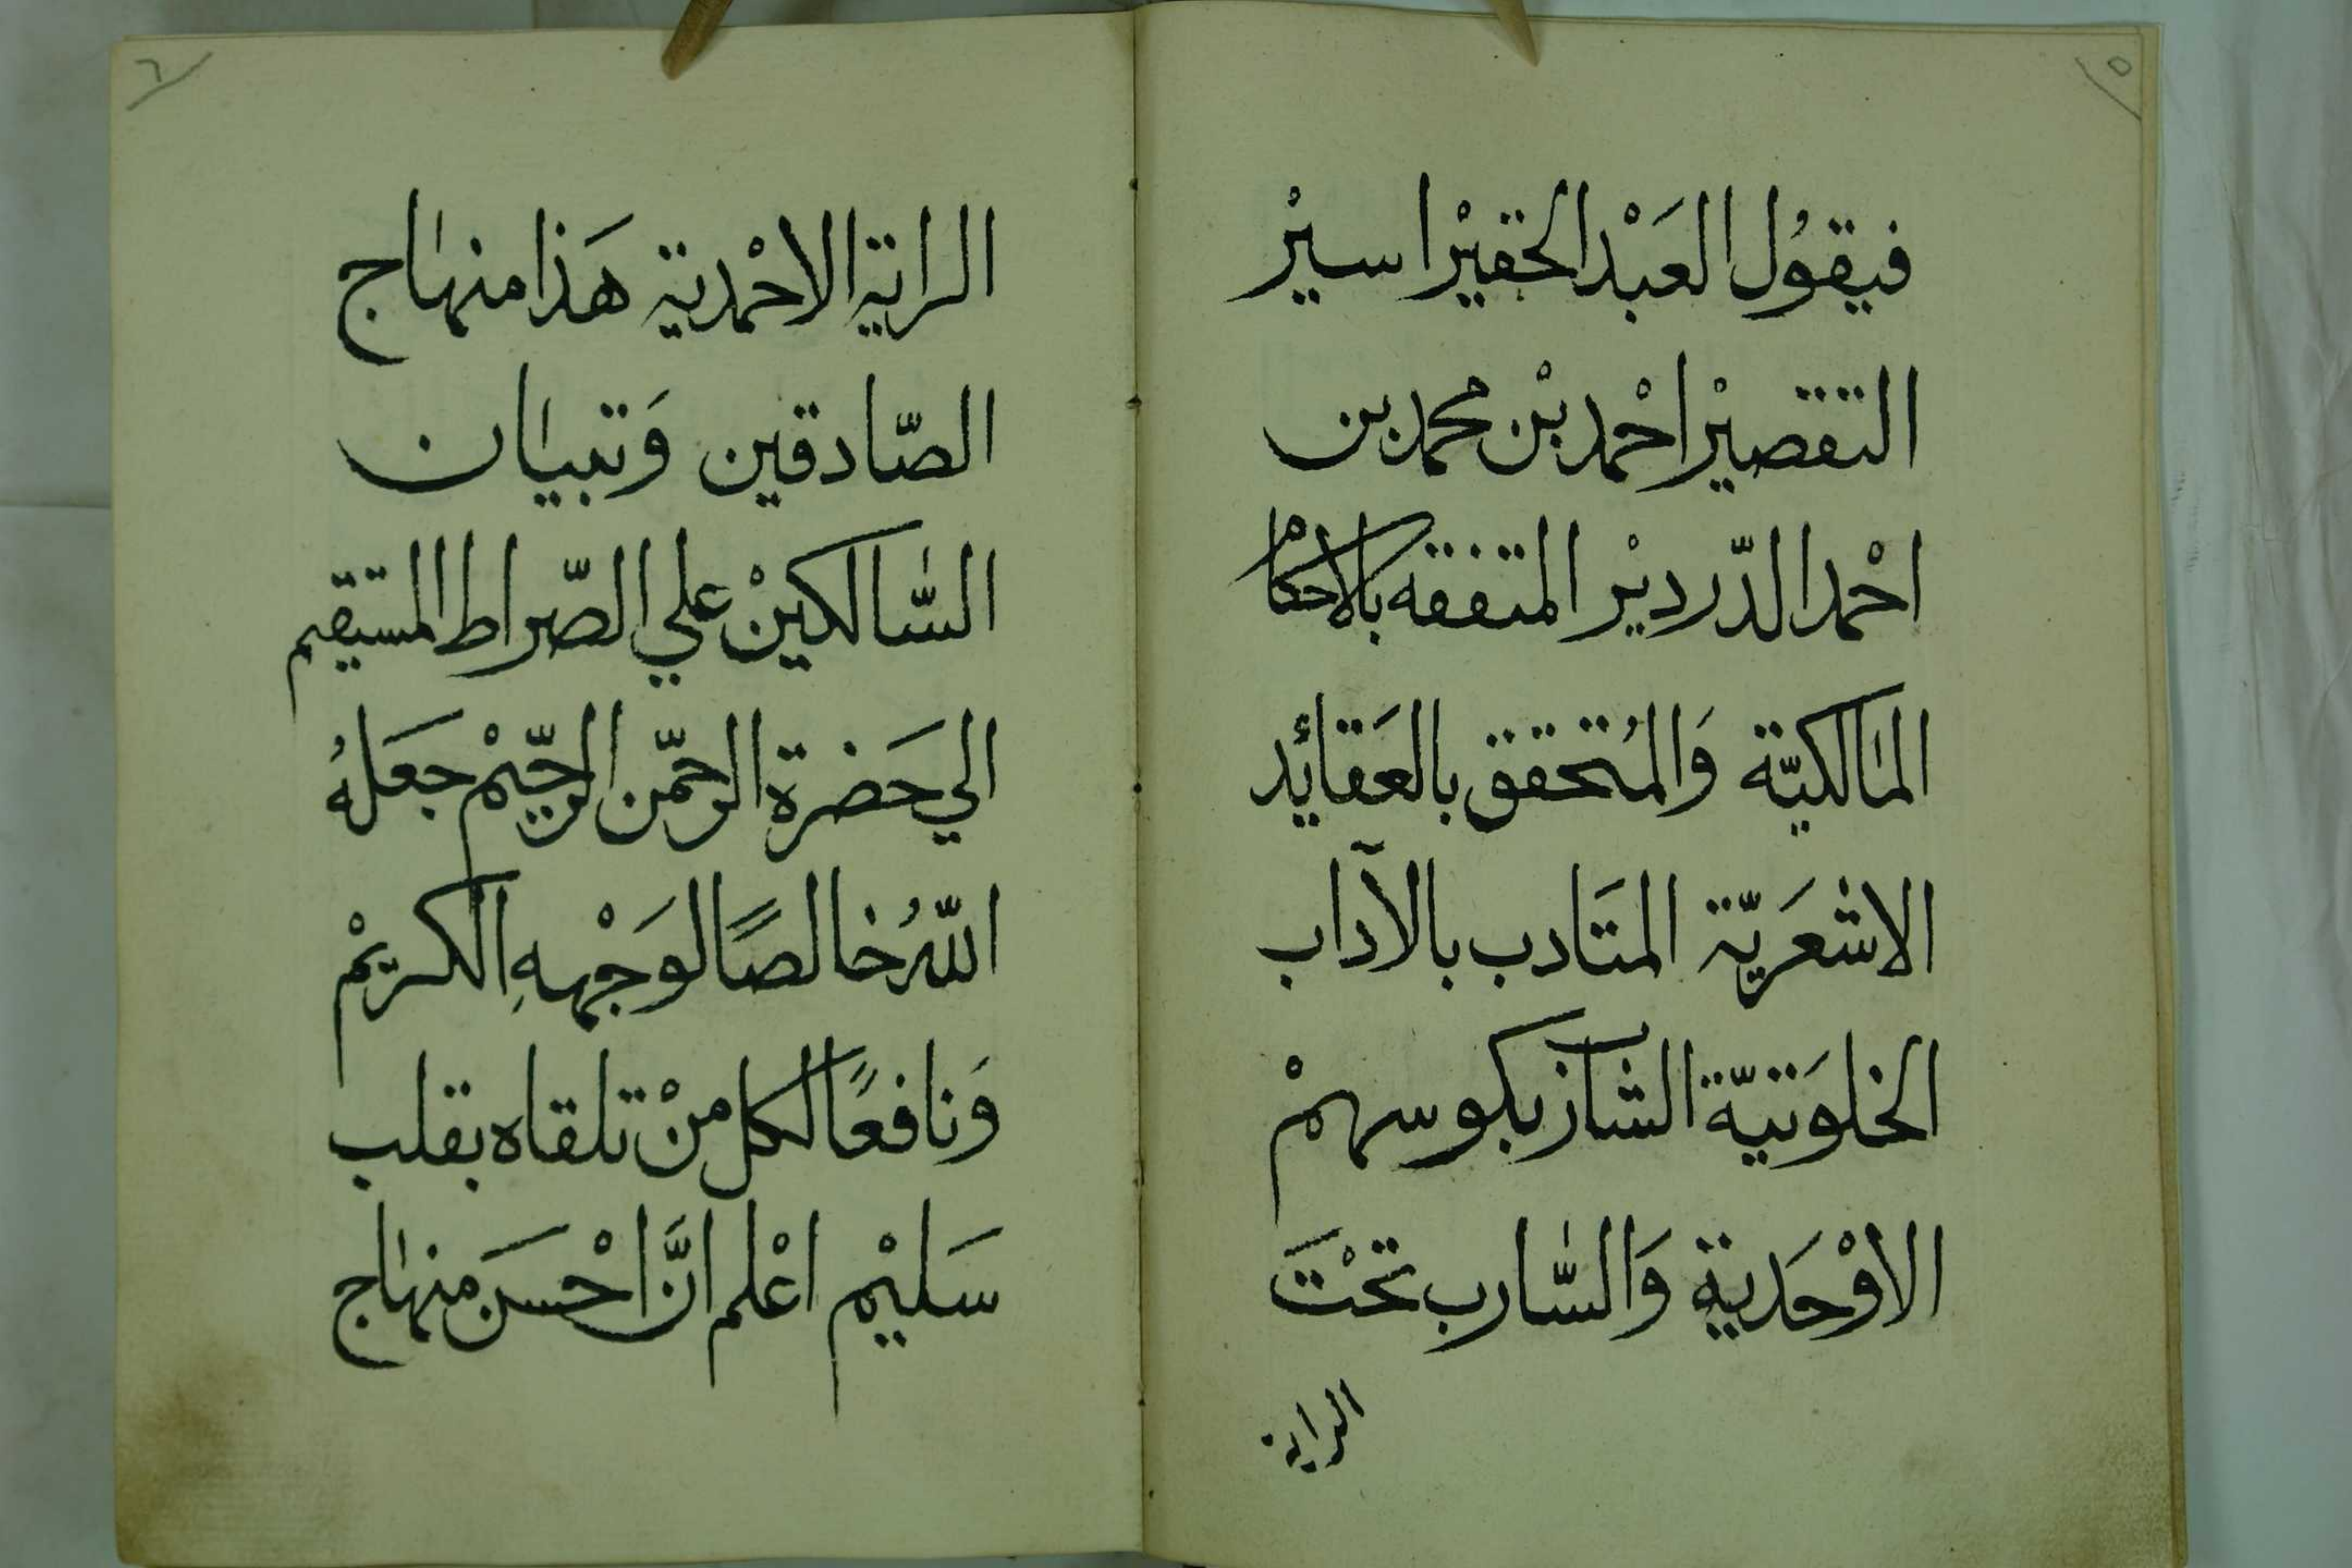 ٥
فيقوُل العَبْد الحقيْر اسيْر
التقصيْر احْمد بْن محمد بن
احْمد الدّرديْر المتفقه بالاحكام
المالكيّة وَالمُتحقق بالعَقائِد
الاشعَريّة المتَادب بالآداب
الخلوَتيّة الشارب بكوسهمْ
الاوْحَدية وَالسّارب تحْتَ
الراية
٦
الراية الاحْمدية هَذا منهاج
الصّادقين وَتبيان
السّالكينْ علي الصّراط المستقيم
الي حَضرة الرحمّن الرحّيْم جعَلهُ
اللّهُ خالصًا لوَجْههِ الكريْم
وَنافعًا لكل منْ تلقاه بقلب
سَليْم اعْلم انَّ احْسَن منهاج